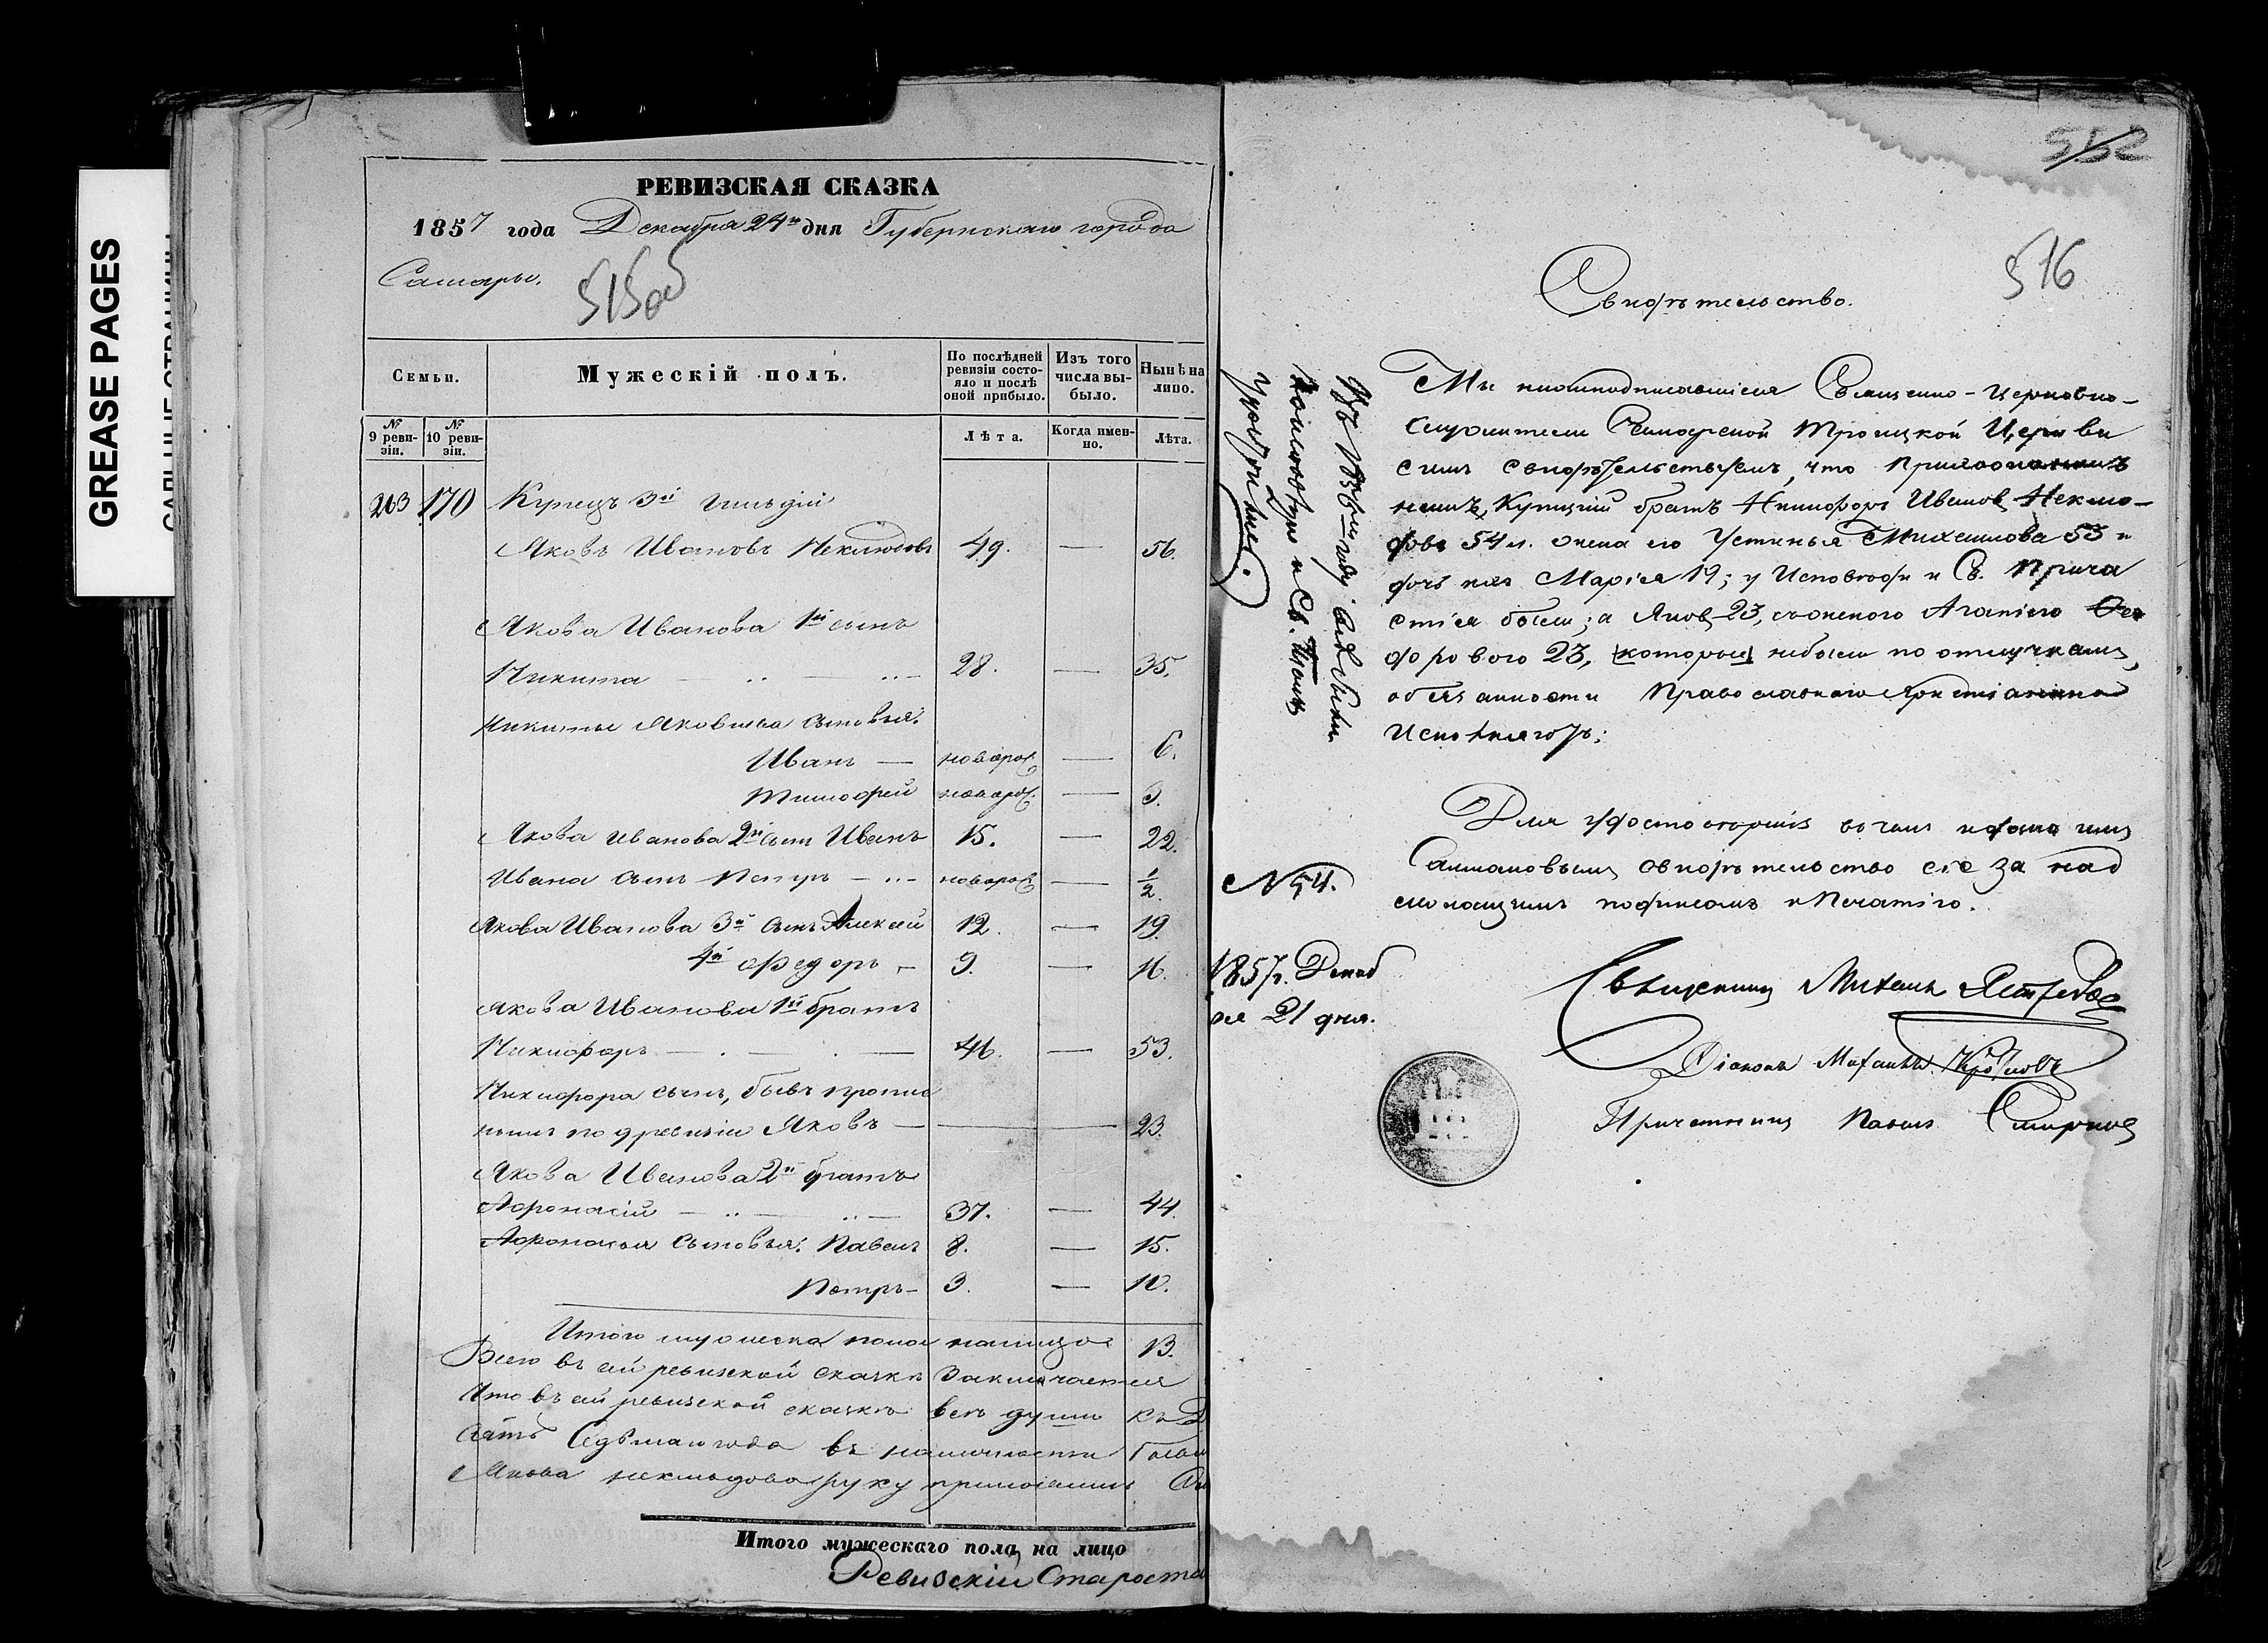 GREASE PAGES
РЕВИЗСКАЯ СКАЗКА
1857 года Декабря 24го дня Губернскаго города
Самары.
515об
Семьи.
Мужескій полъ.
По послѣдней ревизіи состояло и послѣ оной прибыло.
Изъ того числа выбыло.
Нынѣ на лицо.
№ 9 ревизіи.
№ 10 ревизіи.
Лѣта.
Когда именно.
Лѣта.
263 170 Купецъ 3й Гильдіи
Яковъ Ивановъ Неклюдовъ 49. — 56.
Якова Иванова 1й сынъ
Никита — 28. — 35.
Никиты Яковлева сыновья:
Иванъ — новорож. — 6.
Тимофей новорож. — 3.
Якова Иванова 2й сынъ Иванъ 15. — 22.
Ивана сынъ Петръ — новорож. — 1/2.
Якова Иванова 3й сынъ Алексѣй 12. — 19.
4й Федоръ — 9. — 16.
Якова Иванова 1й братъ
Никифоръ — 46. — 53.
Никифора сынъ, бывъ пропис
нымъ по ревизіи Яковъ — 23.
Якова Иванова 2й братъ
Афонасій — 37. — 44.
Афонасья Сыновья: Павелъ 8. — 15.
Петръ — 3. — 10.
Итого мужеска пола налицо 13.
Всего въ сей ревизской сказкѣ Заключается
Что въ сей ревизской сказкѣ всѣ души
Седьмаго года въ наличности
Якова Неклюдова руку приложилъ
Итого мужескаго пола на лицо
Ревизскій Староста
552
516
Свидѣтельство.
Мы нижеподписавшіеся Священно-церковно-
служители Самарской Троицкой Церкви
симъ свидѣтельствуемъ, что
Купецкій братъ Никифоръ Ивановъ Неклю-
довъ 54 л. жена его Устинья Михайлова 53 и
дочь ихъ Марія 19; у Исповѣди и Св. Прича
стія были; а Яковъ 23, съ женою Агапіею Фео
доровою 23, которые небыли по отлучкамъ,
обязанности Православнаго Христіанина
Исполняютъ;
Для удостовѣренія въ чемъ и дано имъ
свидѣтельство сіе за над
лежащимъ подписомъ и Печатію.
№ 54.
1857 г. Декаб
ря 21 дня.
Священникъ Михаилъ Ястребовъ
Діаконъ Михаилъ
Причетникъ Павелъ Смирновъ